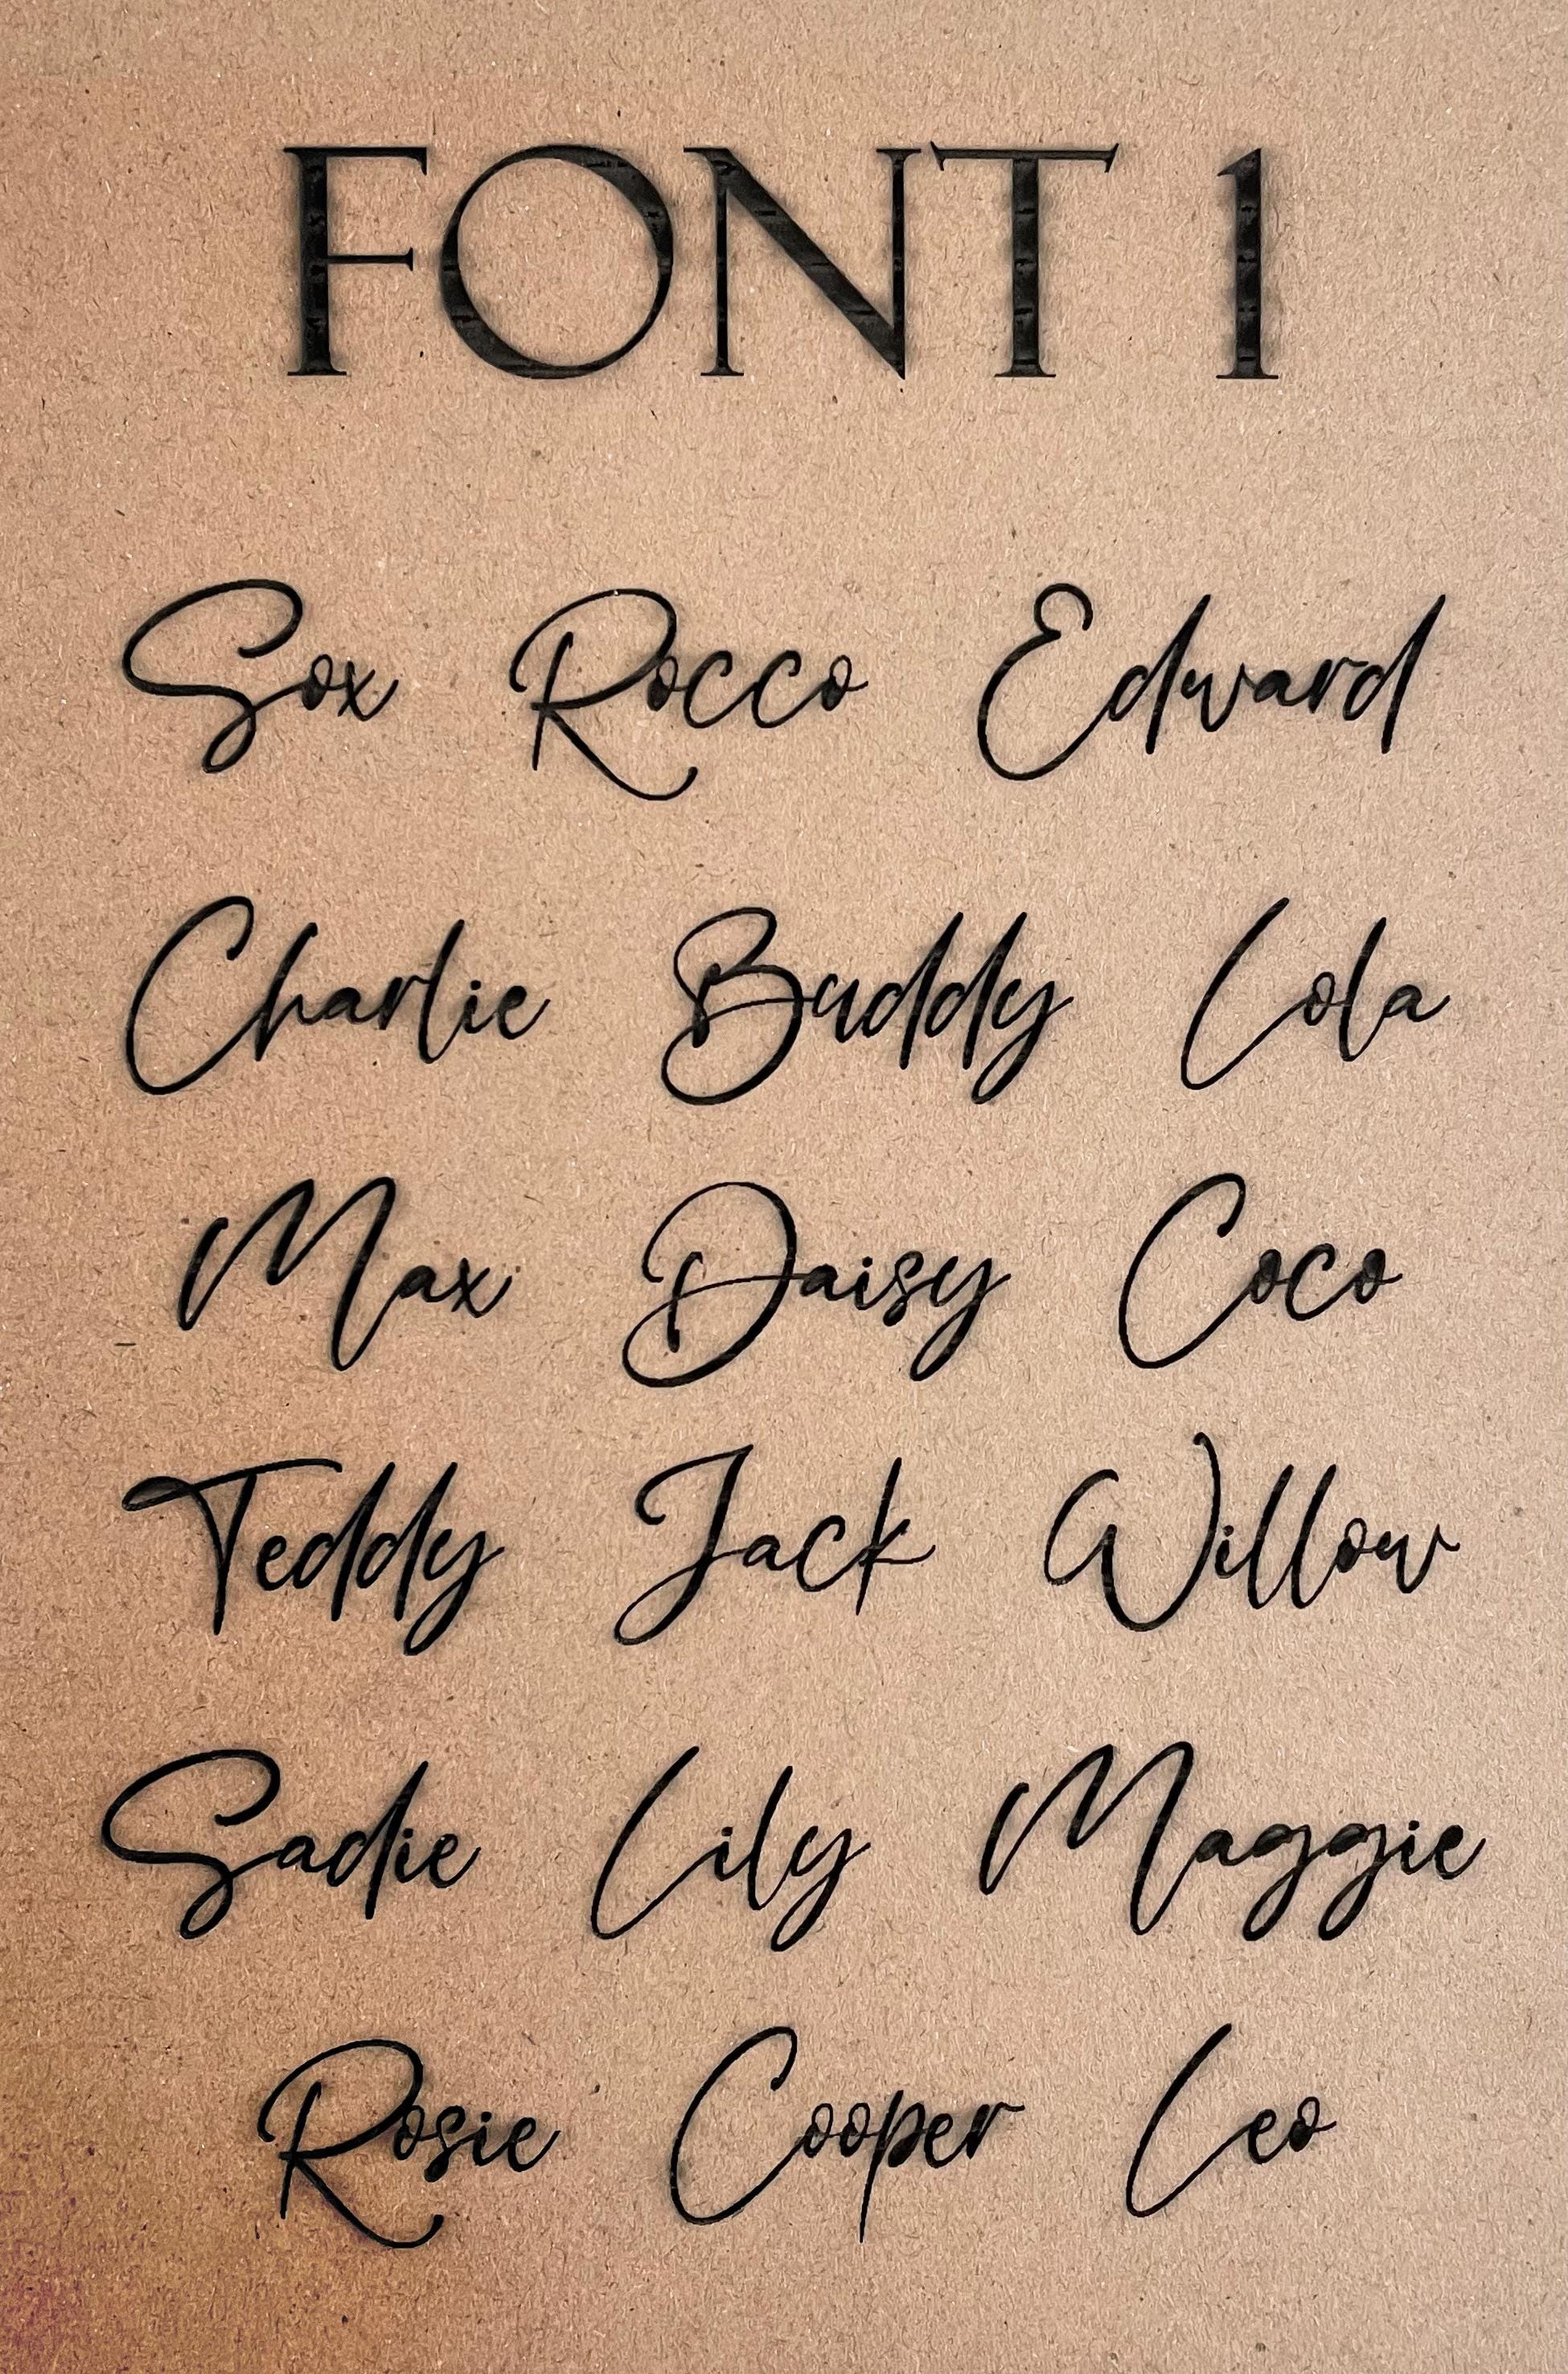 FONT 1
Sox Rocco Edward
Charlie Buddy Lola
Max Daisy Coco
Teddy Jack Willow
Sadie Lily Maggie
Rosie Cooper Leo